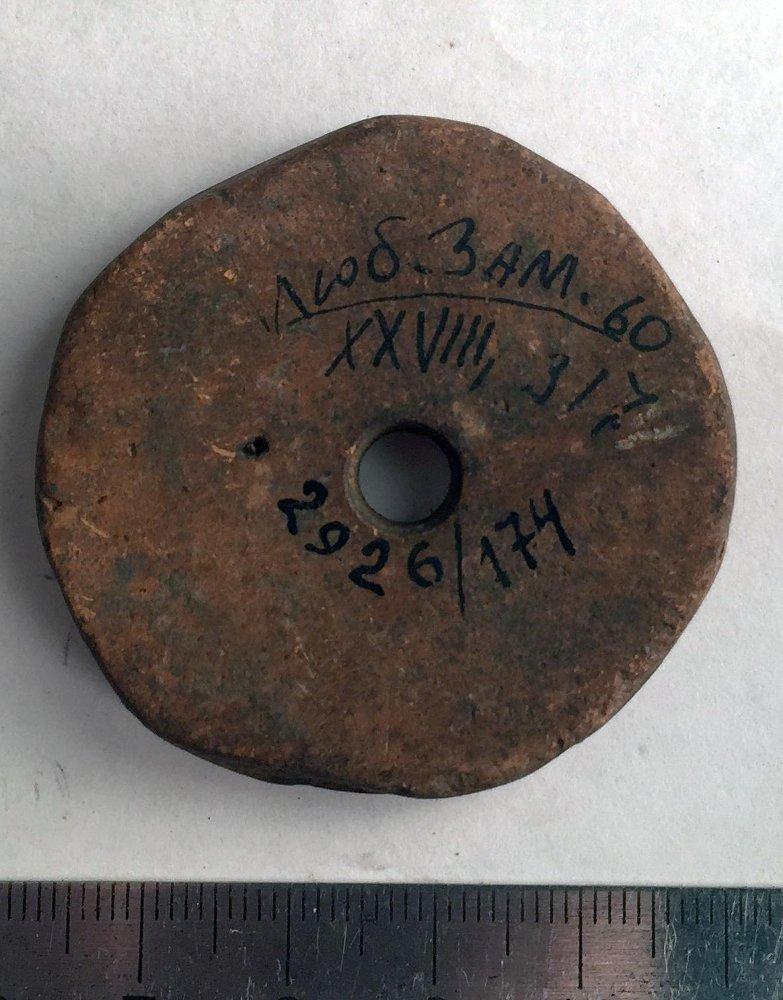 Люб. Зам. 60
XXVIII, 317
2926/174